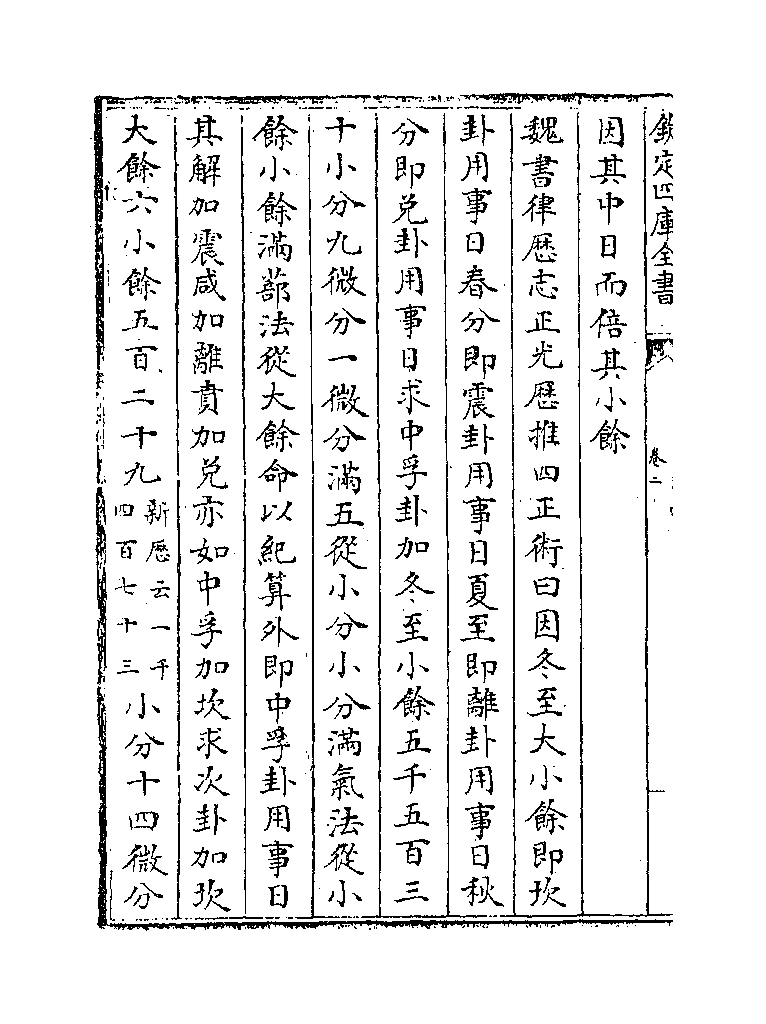 欽定四庫全書
卷二
因其中日而倍其小餘
魏書律歴志正光歴推四正術曰因冬至大小餘即坎
卦用事日春分即震卦用事日夏至即離卦用事日秋
分即兑卦用事日求中孚卦加冬至小餘五千五百三
十小分九微分一微分滿五從小分小分滿氣法從小
餘小餘滿蔀法從大餘命以紀算外即中孚卦用事日
其解加震咸加離賁加兑亦如中孚加坎求次卦加坎
大餘六小餘五百二十九新歴云一千四百七十三小分十四微分